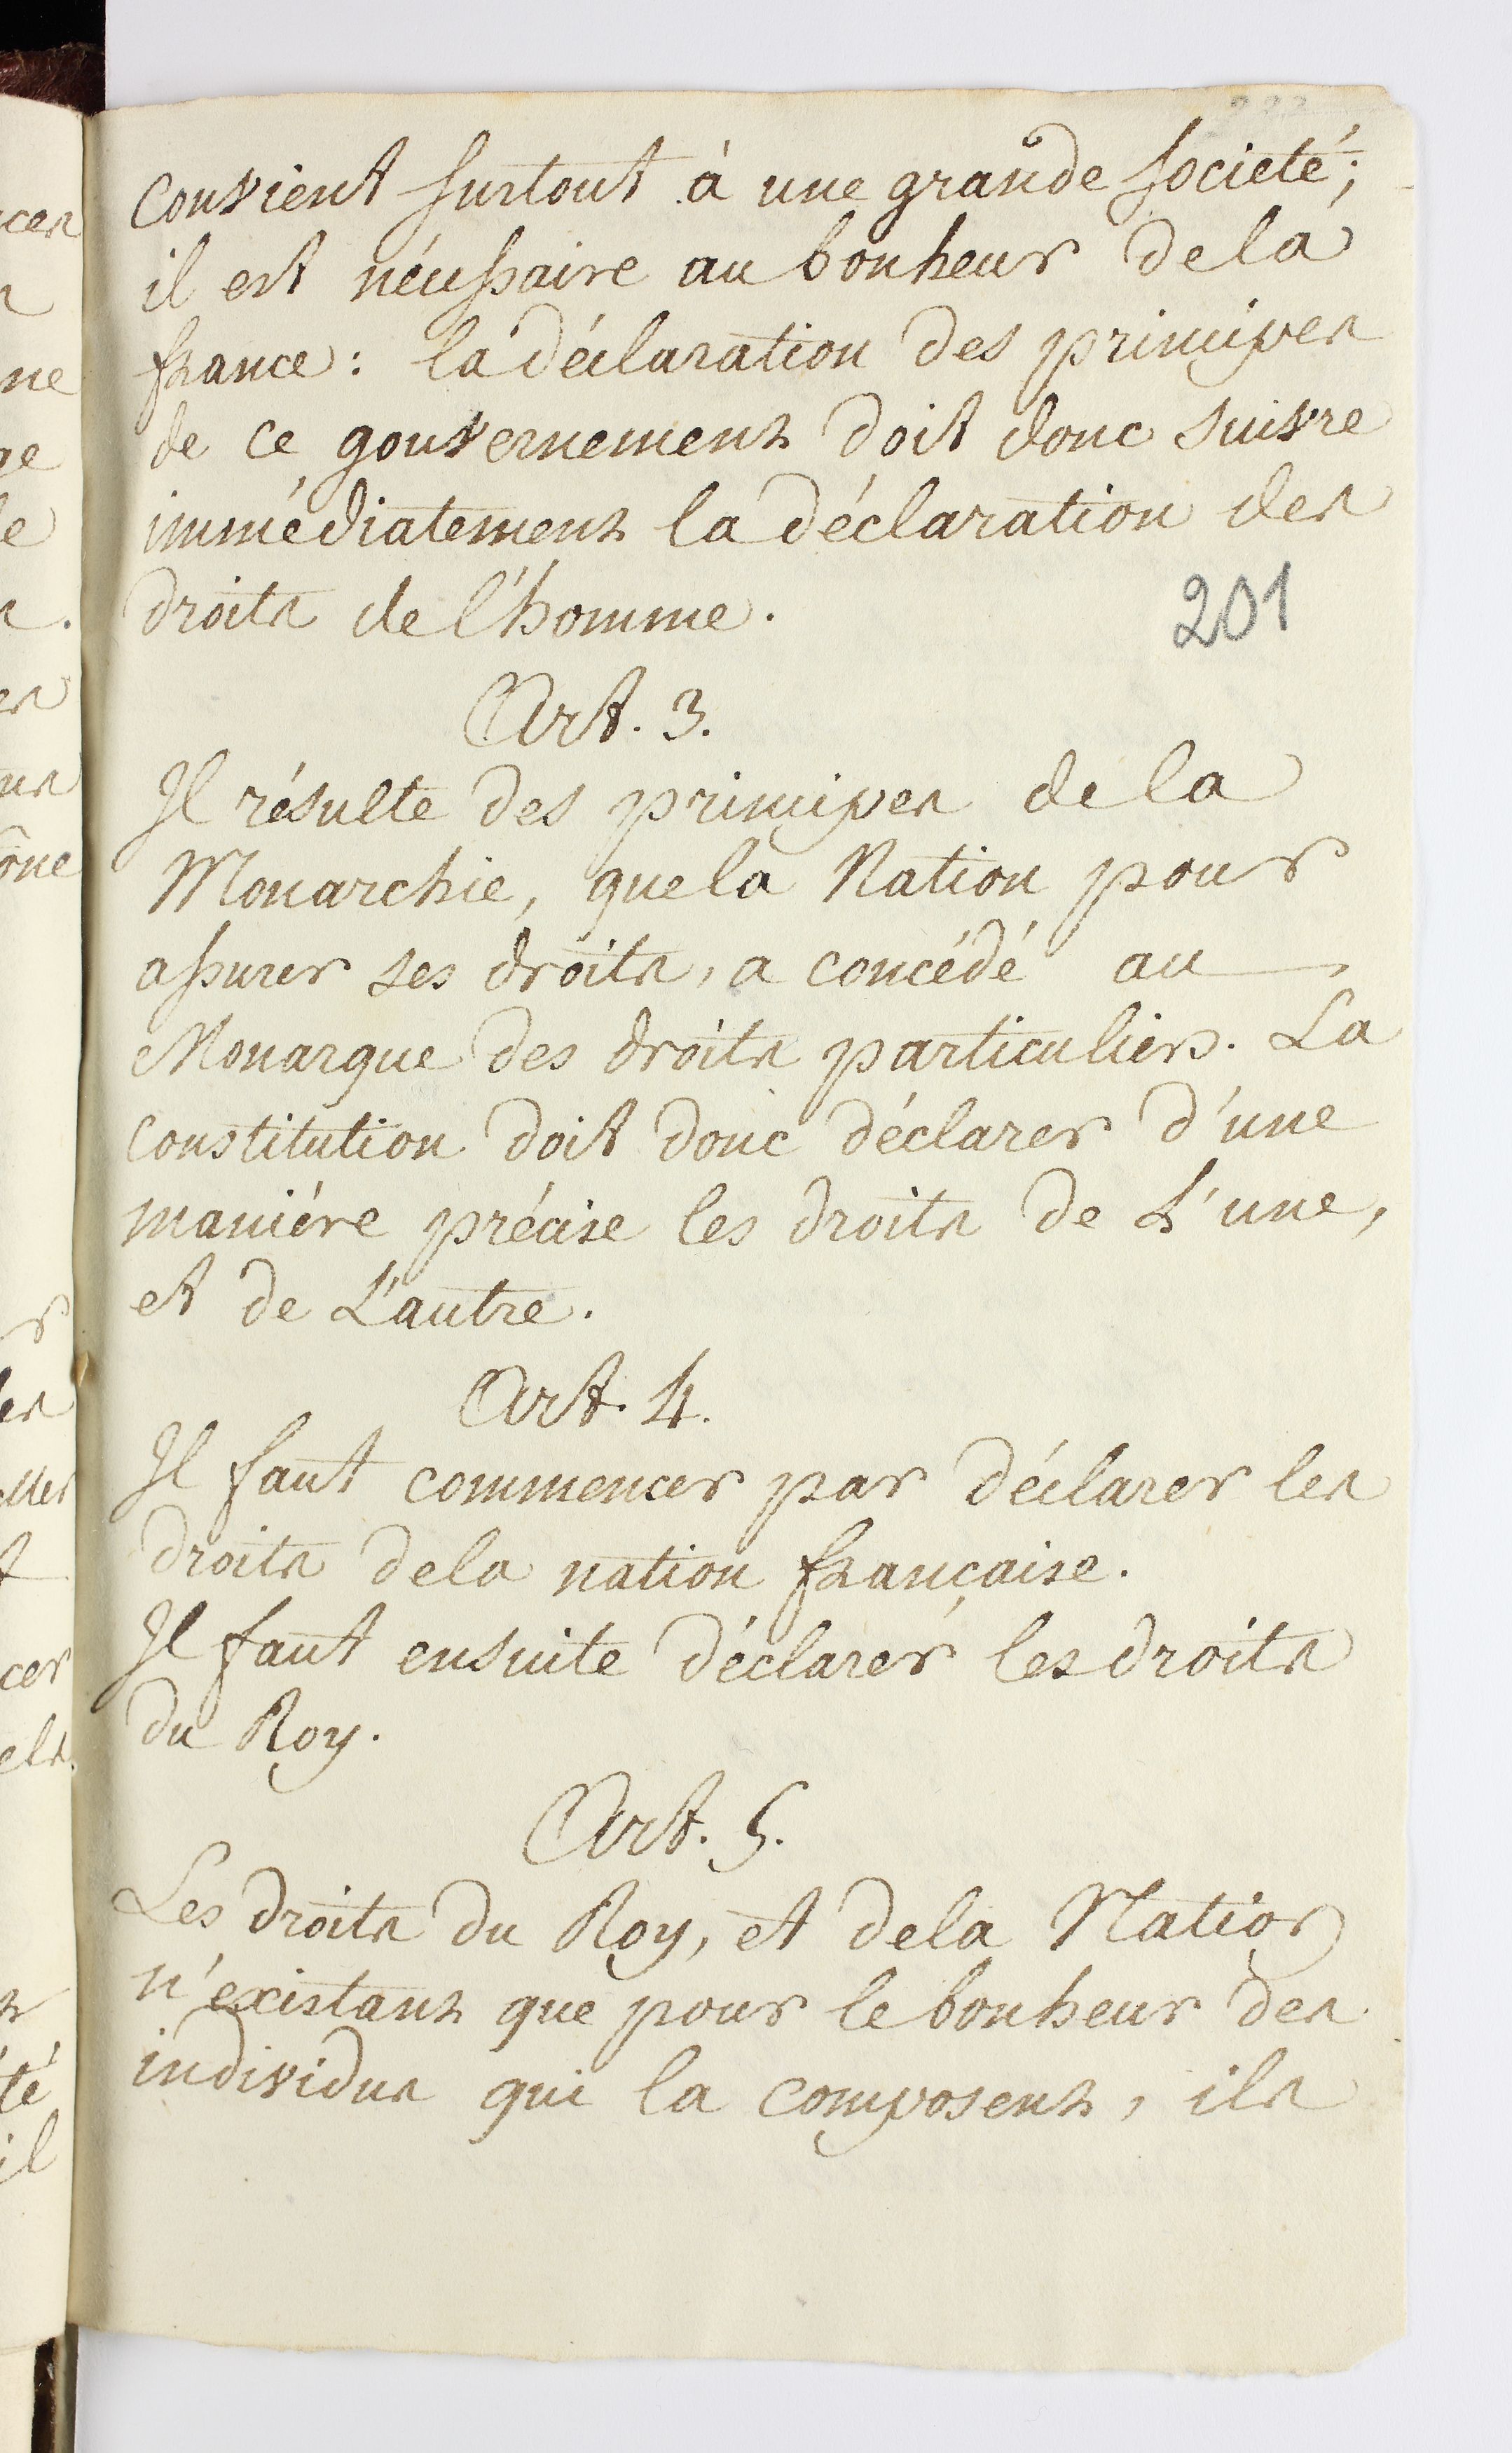 convient surtout à une grande societé;
il est nécessaire au bonheur de la
france: la déclaration des principes
de ce gouvernement doit donc suivre
immédiatement la déclaration des
droits de l'homme.
201
Art. 3.
Il résulte des principes de la
Monarchie, que la Nation pour
assurer ses droits, a concédé au
Monarque des droits particuliers. La
constitution doit donc déclarer d'une
maniére précise les droits de L'une,
et de L'autre.
Art. 4.
Il faut commencer par déclarer les
droits de la nation française.
Il faut ensuite déclarer les droits
du Roy.
Art. 5.
Les droits du Roy, et de la Nation
n'existant que pour le bonheur des
individus qui la composent, ils